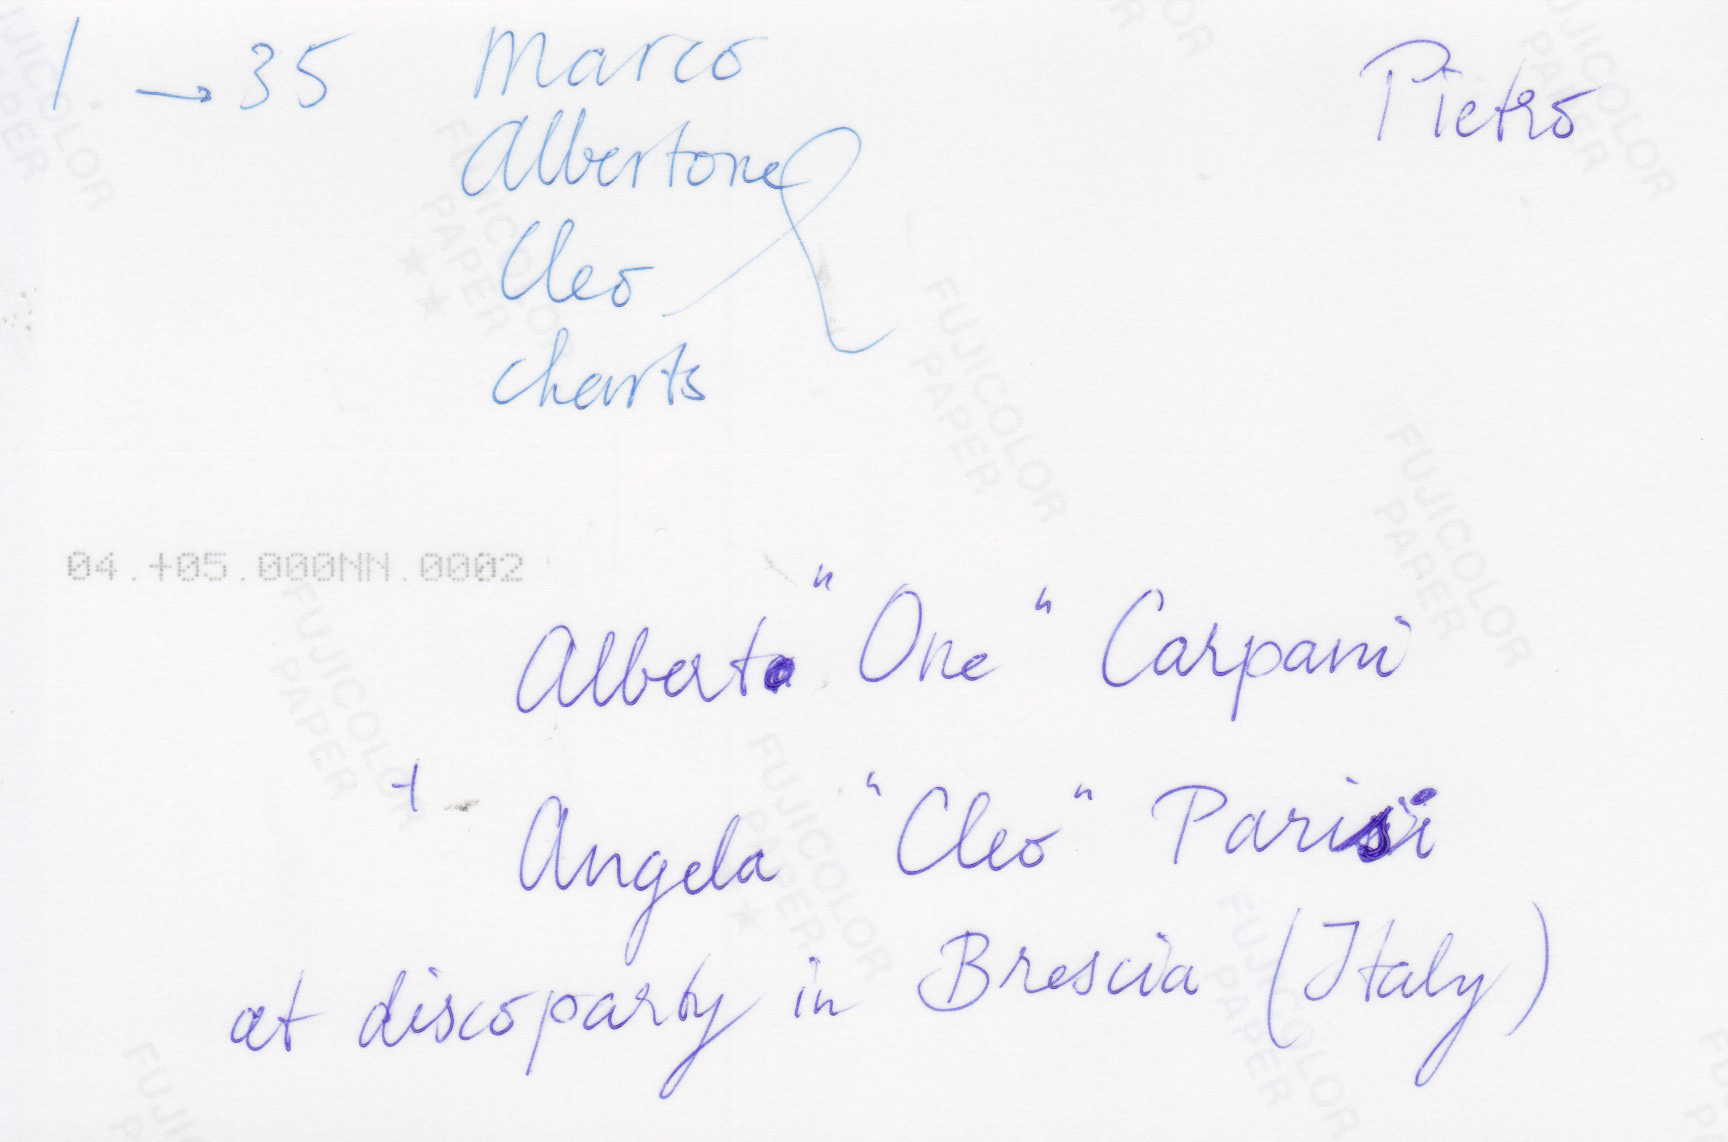 1 → 35 Marco Pietro
Albertone
Cleo
Charts
04.+05.000NN.0002
Alberto "One" Carpani
+ Angela "Cleo" Parisi
at discoparty in Brescia (Italy)
FUJICOLOR
PAPER